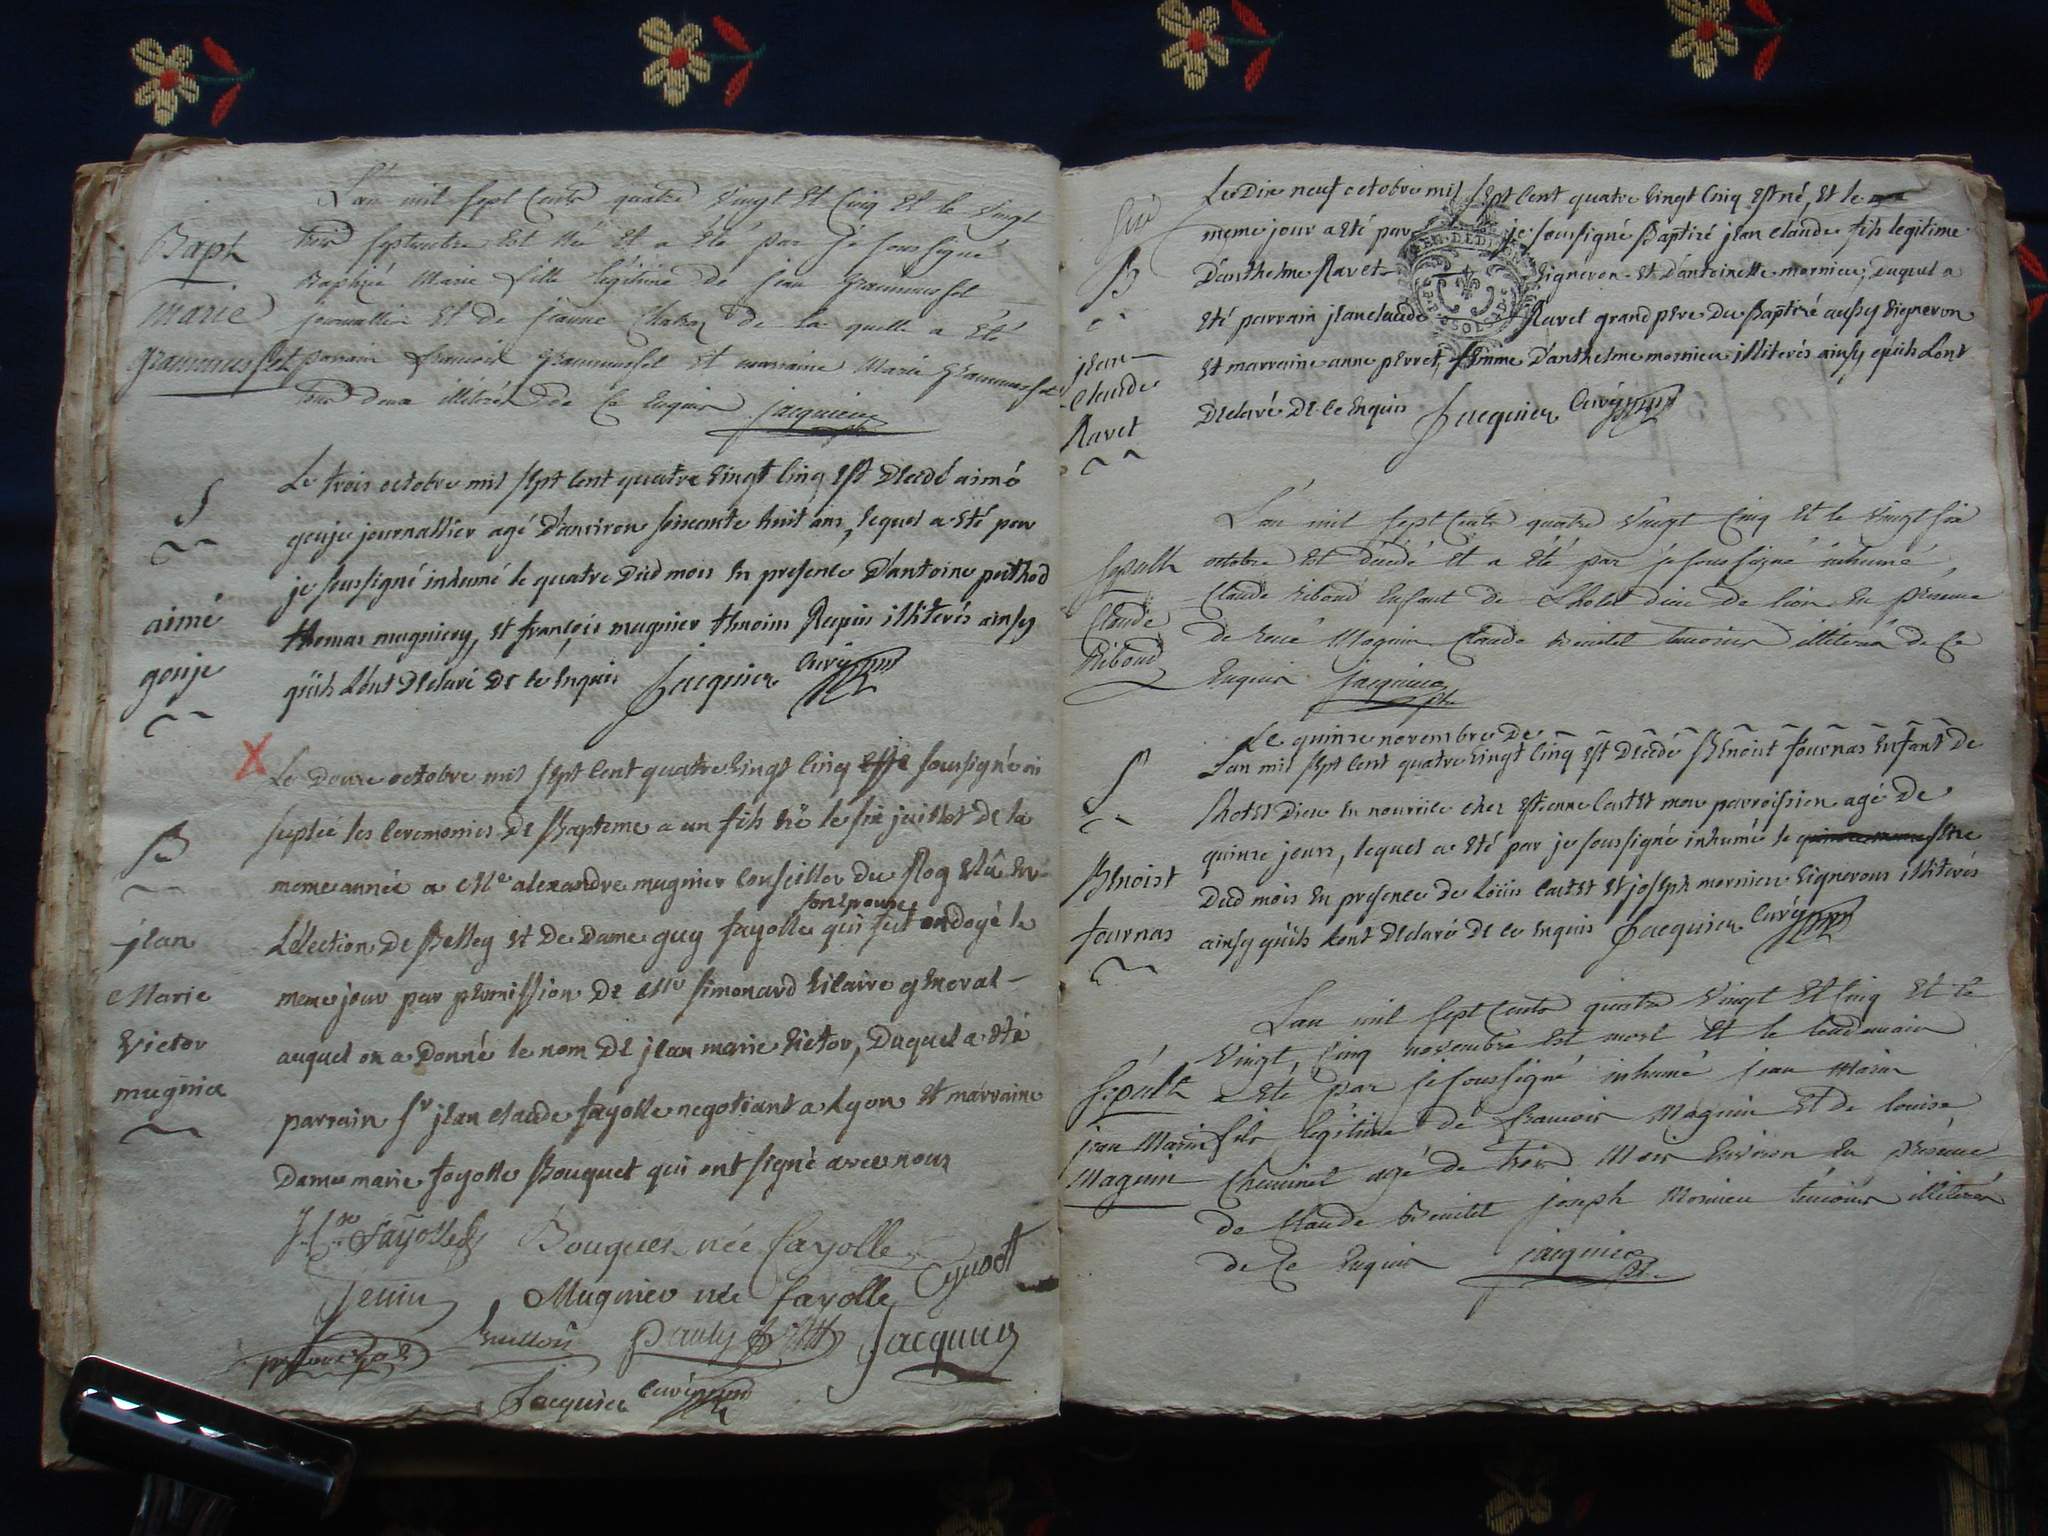 L'an mil sept cents quatre vingt et cinq et le vingt
Baph
trois septembre est née et a été par je soussigné
Baptisé Marie fille légitime de jean Grammusset
marie
journallier et de jeanne Chatron de la quelle a été
Grammusset
parrain francois Grammusset et marraine Marie Grammusset
tous deux illiterés de ce enquis jacquier
Le trois octobre mil sept cent quatre vingt cinq est decedé aimé
S
gouje journallier agé d'anviron soixante huit ans, lequel a eté par
je soussigné inhumé le quatre dud mois en presence d'antoine
aimé
thomas mugniery, et françois mugnier themoins Requis illiterés ainsy
gouje
qu'ils lont declaré de ce enquis Jacquier curé
X
Le douze octobre mil sept cent quatre vingt cinq soussigné ai
supleé les ceremonies de Bapteme a un fils né le six juillet de la
B
meme année a Me alexandre mugnier conseiller du Roy Elû en
son epouse
jean
L'élection de Belley et de Dame guy fayolle qui fut ondoyé le
Marie
meme jour par permission de Mr simonard vicaire general
Victor
auquel on a donné le nom de jean marie victor, duquel a eté
mugnier
parrain sr jean claude fayolle negotiant a Lyon et marraine
Dame marie fayolle Bouquet qui ont signé avec nous
J. Cde fayolle Bouquet née fayolle
Mugnier née fayolle
Jacquier
Jacquier curé
Le Dix neuf octobre mil sept cent quatre vingt cinq est né, et le
meme jour a eté par je soussigné Baptizé jean claude fils legitime
B
D'anthelme Ravet vigneron et d'antoinette mornieu; duquel a
eté parrain jean claude Ravet grand pere du Baptizé aussy vigneron
jean
et marraine anne perret, femme D'anthelme mornieu illiterés ainsy qu'ils lont
claude
Ravet
declaré de ce enquis Jacquier curé
L'an mil sept cents quatre vingt cinq et le vingt six
Sepult
octobre est décédé et a été par je soussigné inhumé
Claude
Claude Riboud enfant de L'hotel dieu de lion en présence
Riboud
de Maguin Claude temoins illiterés de ce
enquis jacquier
Le quinze novembre de
L'an mil sept cent quatre vingt cinq est Decedé Benoist fournas enfant de
S
lhotel Dieu en nourrice chez Etienne Castet mon parroissien agé de
quinze jours, lequel a eté par je soussigné inhumé le seze
Benoist
Dud mois en presence de Loüis Castet et joseph mornieu vignerons illiterés
fournas
ainsy qu'ils lont declaré de ce enquis Jacquier curé
L'an mil sept cents quatre vingt et cinq et le
vingt cinq novembre est mort et le lendemain
Sépult
a eté par je soussigné inhumé jean Marin
jean Marin
fils légitime de francois Maguin et de louise
Maguin
Cheminet agé de trois Mois Environ en présence
de Claude joseph Mornieu temoins illiterés
de ce enquis jacquier